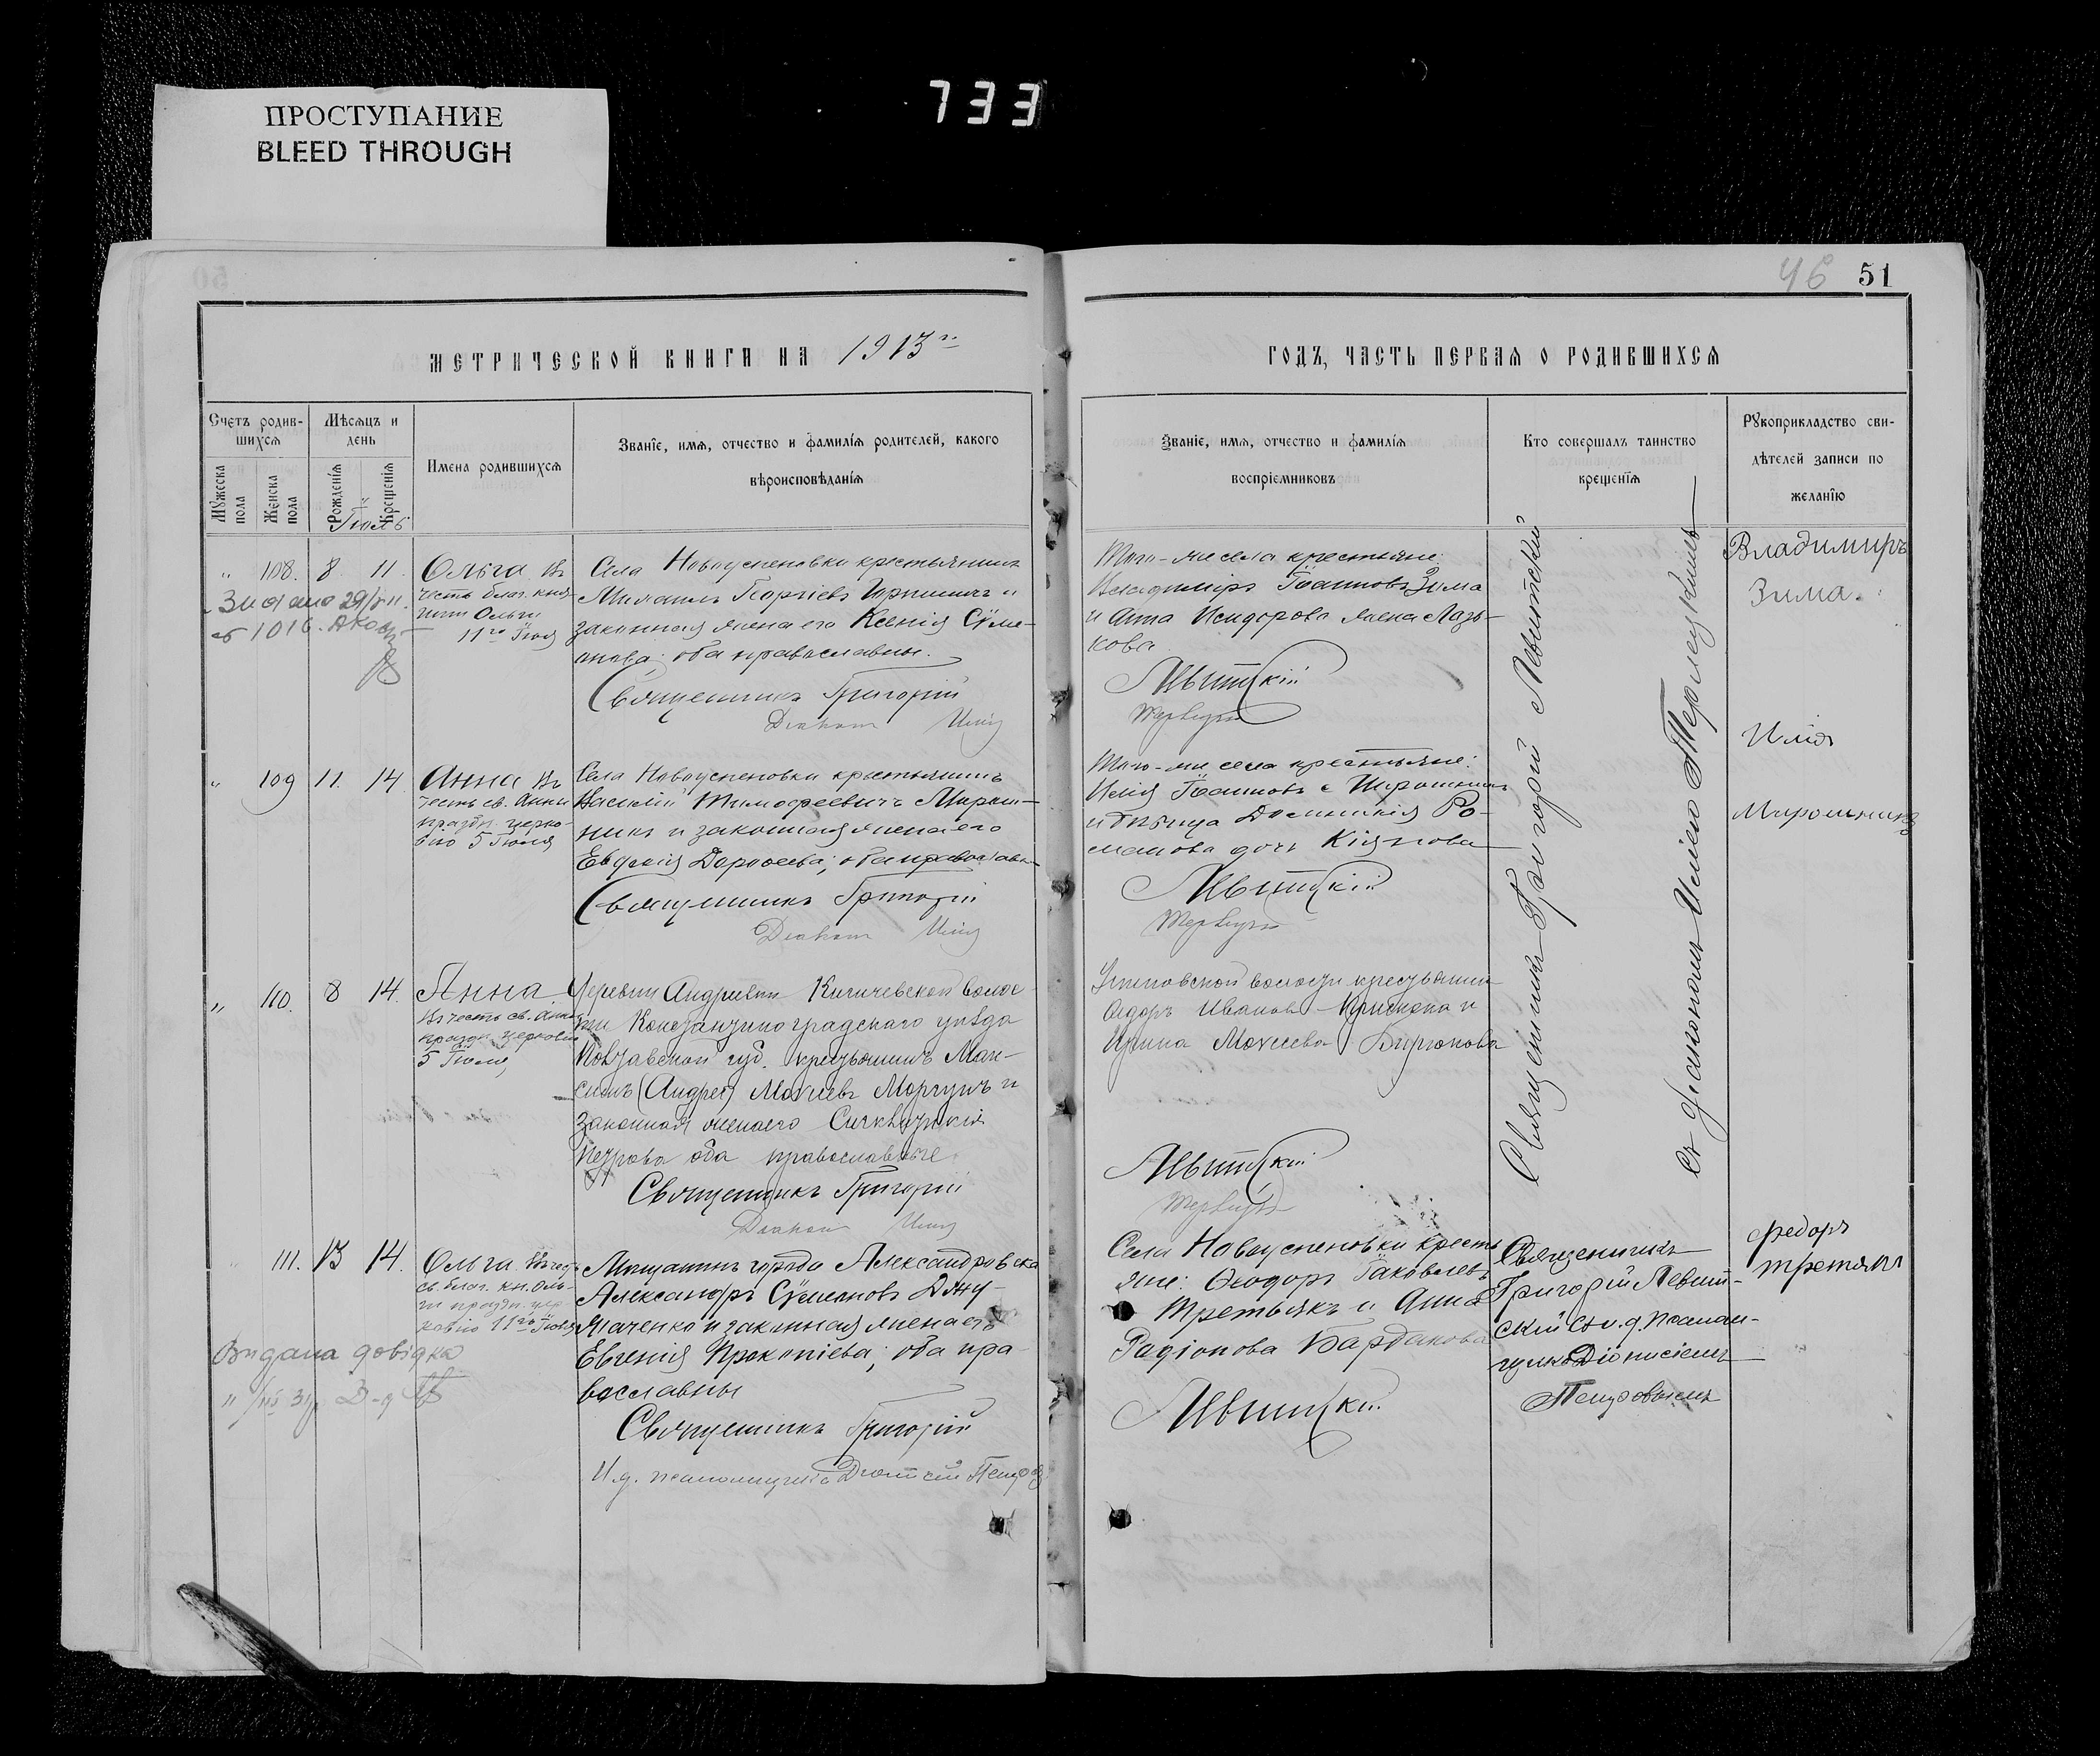 ПРОСТУПАНИЕ
BLEED THROUGH
733
46 51
МЕТРИЧЕСКОЙ КНИГИ НА 1913 г.
ГОДЪ, ЧАСТЬ ПЕРВАЯ О РОДИВШИХСЯ
Счетъ родив-
шихся
Мужеска пола
Женска пола
Мѣсяцъ и
день
Рожденія
Крещенія
Іюль
Имена родившихся
Званіе, имя, отчество и фамилія родителей, какого
вѣроисповѣданія
Званіе, имя, отчество и фамилія
воспріемниковъ
Кто совершалъ таинство
крещенія
Рукоприкладство сви-
дѣтелей записи по
желанію
" 108. 8 11.
Ольга Въ
честь благ. кня-
гини Ольги
11го Іюля
29/
1016.
Села Новоуспеновки крестьянинъ
Михаилъ Георгіевъ и
законная жена его Ксенія Сѵме-
онова; оба православны.
Священникъ Григорій
Діаконъ Илія
Того-же села крестьяне:
Владиміръ Іоанновъ Зима
и Анна Исидорова жена Лазь-
кова
Левитскій
Владимиръ
Зима.
" 109 11. 14
Анна Въ
честь св. Анны
праздн. церко-
вію 5 Іюля
Села Новоуспеновки крестьянинъ
Василій Тимофеевичъ Мирош-
никъ и законная жена его
Евдокія Дороѳеева; оба православн
Священникъ Григорій
Діаконъ Илія
Того-же села крестьяне:
Илія Іоанновъ Мирошникъ
и дѣвица Домникія Ро-
манова дочь
Левитскій
Илія
Мирошникъ
" 110. 8 14.
Анна
Въ честь св. Анны
праздн. церковію
5 Іюля,
Деревни Андреевки волос-
ти Константиноградскаго уѣзда
Полтавской губ. крестьянинъ Мак-
симъ (Андрей) Моѵсеевъ Моргунъ и
законная жена его
Петрова оба православные
Священникъ Григорій
Діаконъ Илія
волости крестьянинъ
Ѳедоръ Ивановъ и
Ирина Моѵсеева Бирюкова
Левитскій
Священникъ Григорій Левитскій
съ діакономъ Иліею
111. 13 14.
Ольга Въ честь
св. благ. кн. Оль-
ги праздн. цер-
ковію 11го Іюля
Видана довідка
Мѣщанинъ города Александровска
Александръ Сѵмеоновъ Джу-
маченко и законная жена его
Евгенія Прокопіева; оба пра-
вославны
Священникъ Григорій
И.д. псаломщика Діонисій Петров
Села Новоуспеновки кресть
яне: Ѳеодоръ Іаковлевъ
Третьякъ и Анна
Радіонова Бардакова
Левитскій
Священникъ
Григорій Левит-
скій съ и.д. псалом-
щика Діонисіемъ
Петровымъ
Федоръ
Третякъ